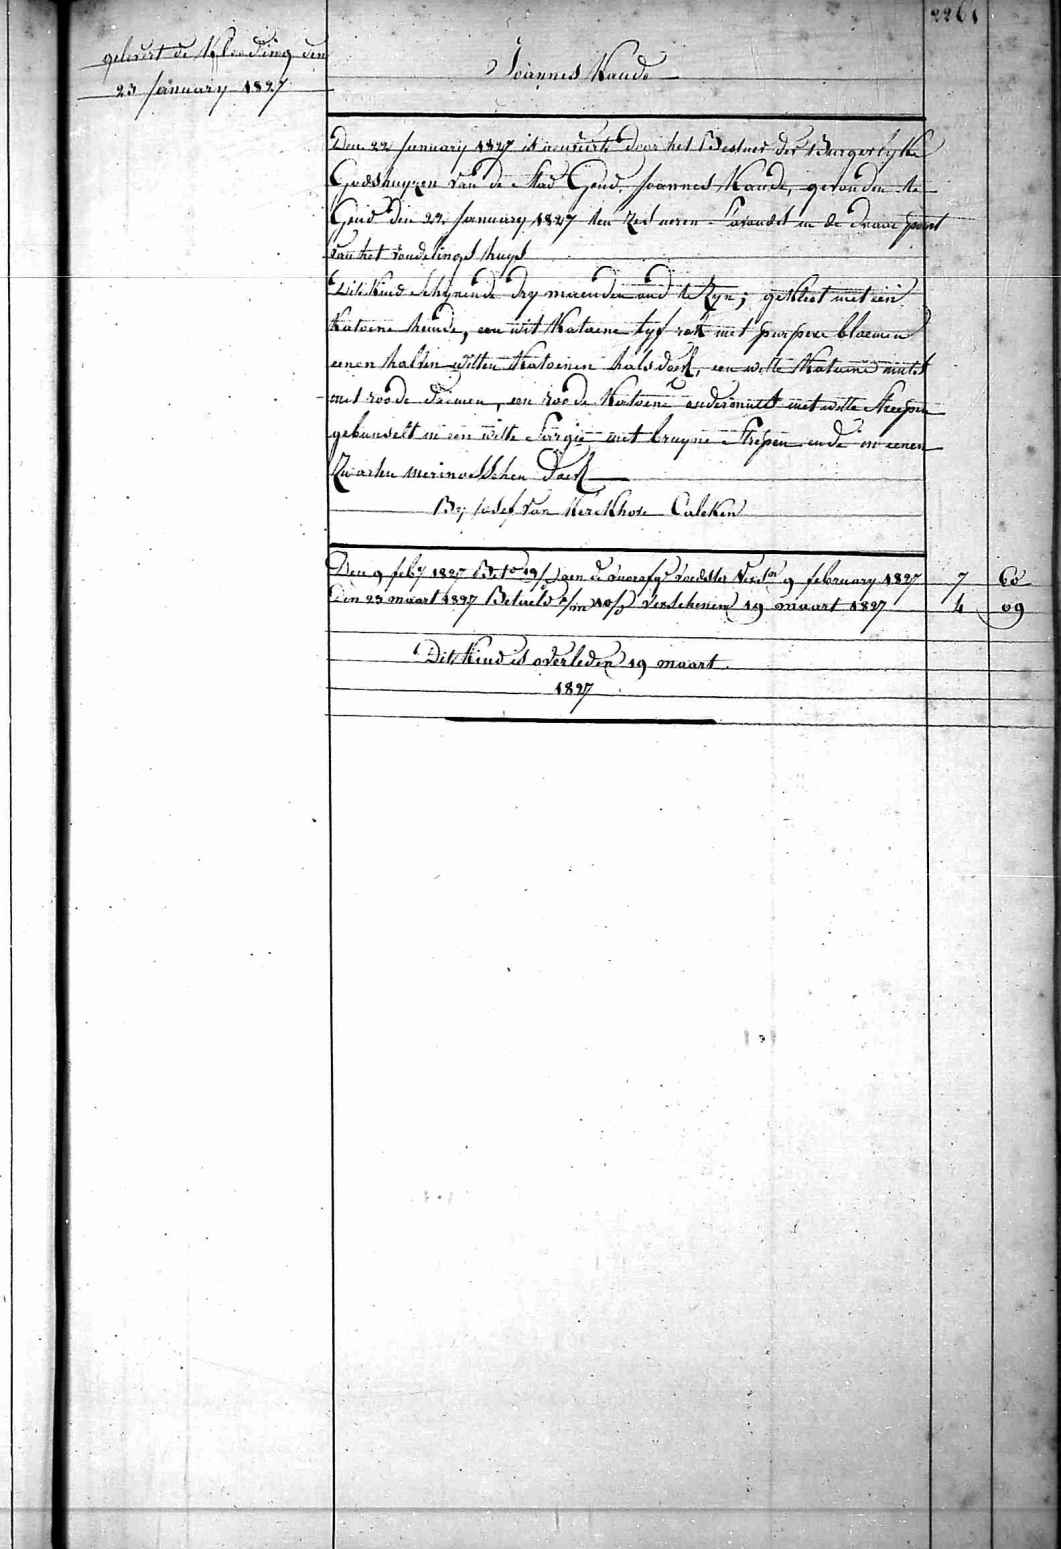 2261
gelevert de Kleeding den
23 January 1827
Joannes Kaude
Den 22 January 1827 is door het Bestuer der Burgerlyke
Godshuyzen van de Stad Gend, Joannes Kaude, gevonden te
Gend den 22 January 1827 ten zes ueren s'avonds in de
van het vondelingshuys
Dit Kind schynende dry maenden oud te zyn; gekleet met een
Katoene hemde, een wit Katoene lyf rok met purpere bloemen
eenen halven witten Katoenen halsdoek, een witte Katoene muts
met roode bloemen, een roode Katoene ondermuts met witte streepen
gebunselt in een witte Sargie met bruyne strepen ende in eenen
Zwarten merinosschen Doek
By Josef van Kerckhove Calcken
Den 9 feb 1827 aen de voedster 9 february 1827 7 60
den 23 maart 1827 Betaeld verschenen 19 maart 1827 4 09
Dit Kind is overleden 19 maart
1827